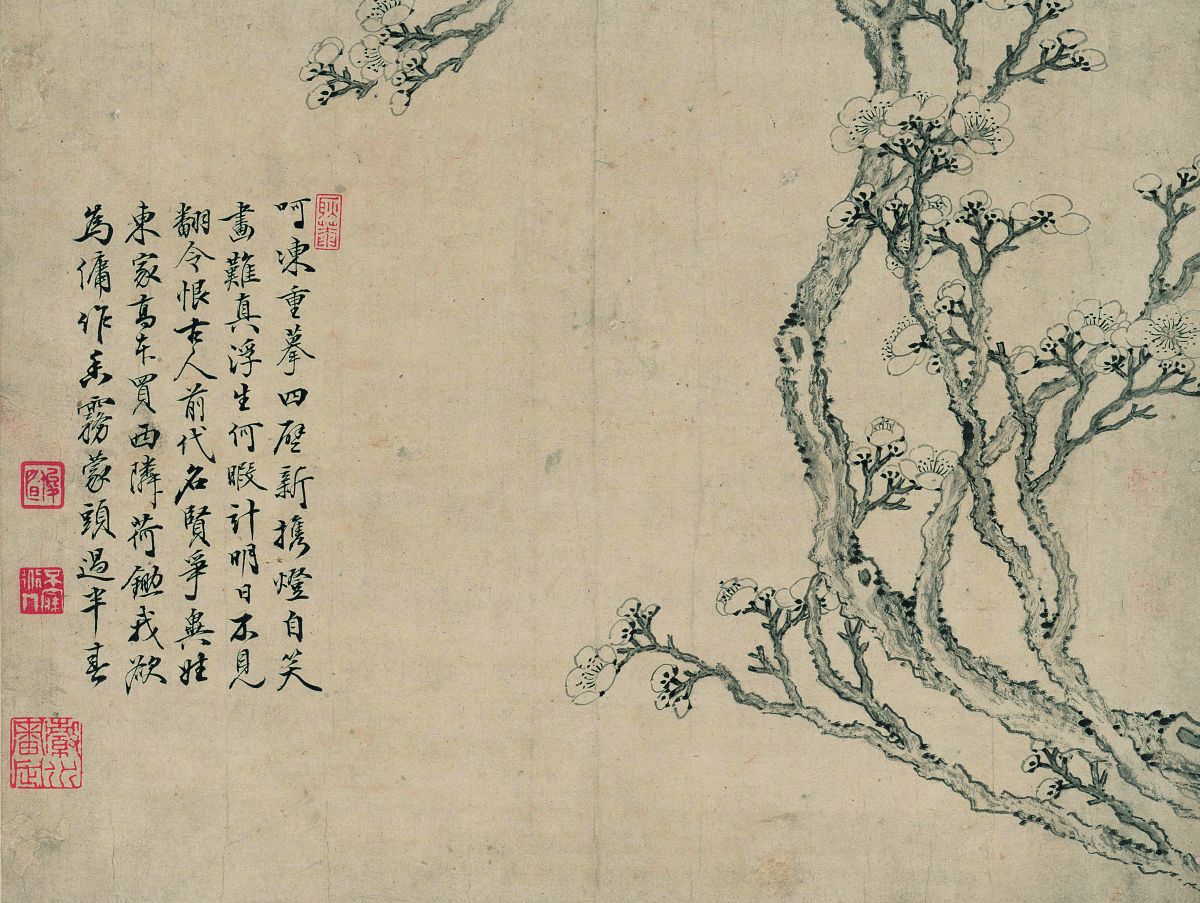 呵凍重摹四壁新擕燈自笑
畫難真浮生何暇計明日不見
翻令恨古人前代名賢爭與姓
東家高買西隣荷鋤我欲
為傭作香霧蒙頭過半春